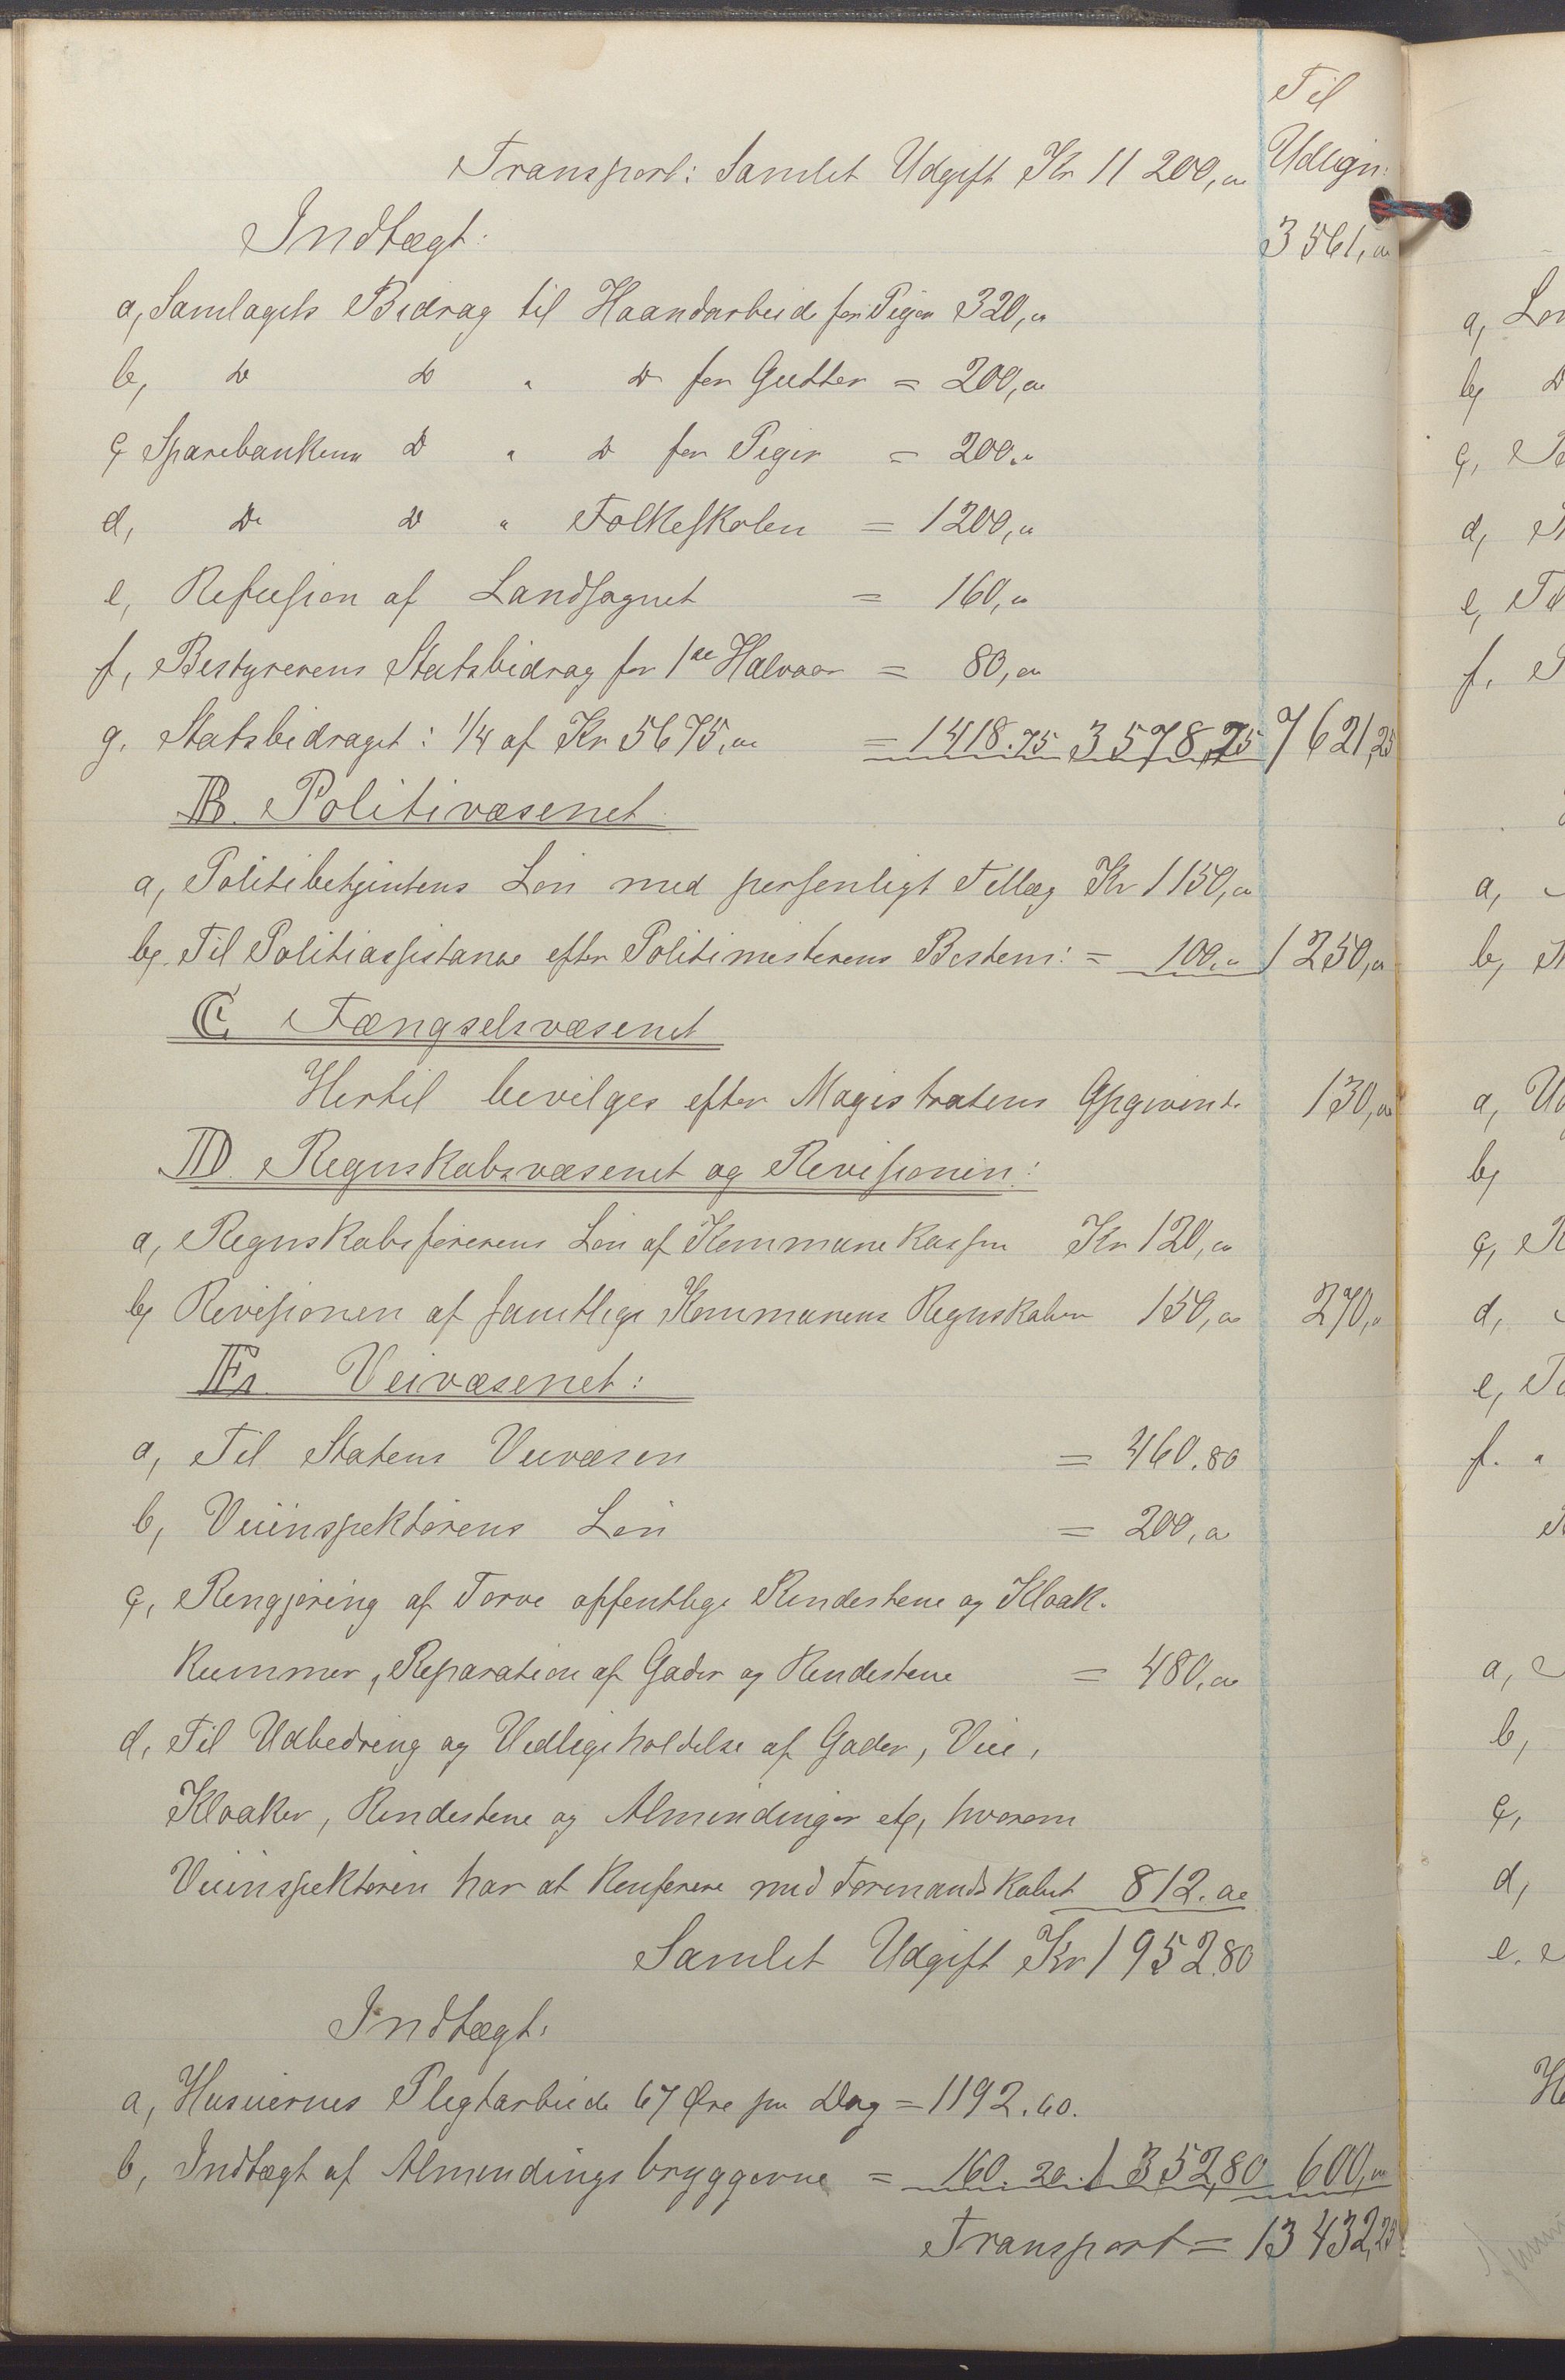 Til
Transport: Samlet Udgift Kr 11 200,00 Udlign:
Indtægt: 3 561,00
a, Samlagets Bidrag til Haandarbeide for Piger 320,00
b, Do Do " Do for Gutter = 200,00
c, Sparebankens Do " Do for Piger = 200.00
d, Do Do " Folkeskolen = 1200,00
e, Refusion af Landsognet = 160,00
f, Bestyrerens Statsbidrag for 1ste Halvaar = 80,00
g. Statsbidraget: 1/4 af Kr 5675,00 = 1418.75 3578,75 7621,25
B. Politivæsenet.
a, Politibetjentens Løn med personligt Tillæg Kr 1150,00
b, Til Politiassistance efter Politimesterens Bestem: = 100.00 1250,00
C. Fængselsvæsenet
Hertil bevilges efter Magistratens Opgivende 130,00
D. Regnskabsvæsenet og Revisionen:
a, Regnskabsførerens Løn af Kommunekassen Kr 120,00
b, Revisionen af samtlige Kommunens Regnskaber 150,00 270,00
E. Veivæsenet:
a, Til Statens Veivæsen = 460.80
b, Veiinspektørens Løn = 200,00
c, Rengjøring af Torve offentlige Rendestene og Kloak-
kummer, Reparation af Gader og Rendestene = 480,00
d, Til Udbedring og Vedligeholdelse af Gader, Veie,
Kloaker, Rendestene og Almindinger etc, hvorom
Veiinspektøren har at konferere med Formandskabet 812.00
Samlet Udgift Kr 1952.80
Indtægt:
a, Huseiernes Pligtarbeide 67 Øre pr Dag = 1192.60.
b, Indtægt af Almindingsbryggerne = 160.20. 1352,80 600,00
Transport = 13432,25